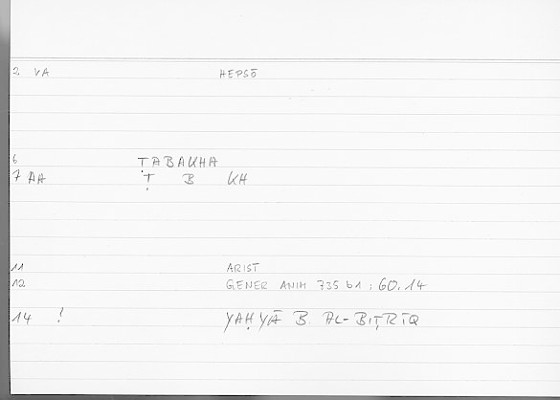 2 VA HEPSŌ
6 ṬABAKHA
7 AA Ṭ B KH
11 ARIST
12 GENER ANIM 735 b1 ; 60.14
14 ! YAḤYĀ B. AL-BIṬRĪQ